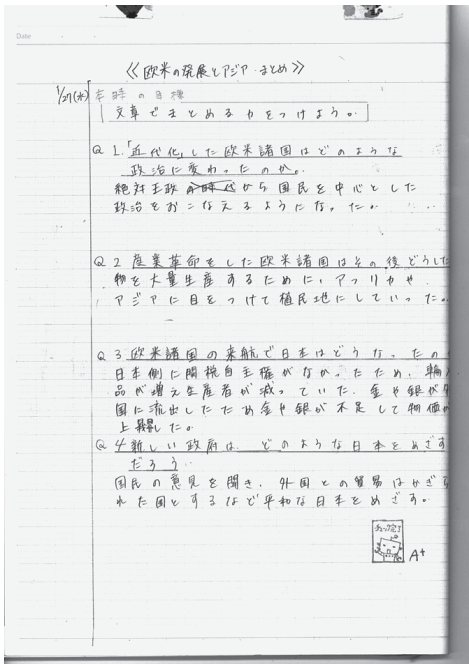 Date
≪欧米の発展とアジア・まとめ≫
1/27(水) 本時の目標
文章でまとめる力をつけよう。
Q 1.「近代化」した欧米諸国はどのような
政治に変わったのか。
絶対王政から国民を中心とした
政治をおこなえるようになった。
Q 2 産業革命をした欧米諸国はその後どうした
物を大量生産するためにアフリカや
アジアに目をつけて植民地にしていった。
Q 3 欧米諸国の来航で日本はどうなったの
日本側に関税自主権がなかったため、輸
品が増え生産者が減っていた。金や銀が外
国に流出したため金や銀が不足して物価が
上昇した。
Q 4 新しい政府は、どのような日本をめざす
だろう
国民の意見を聞き、外国との貿易はかぎら
れた国とするなど平和な日本をめざす。
A+